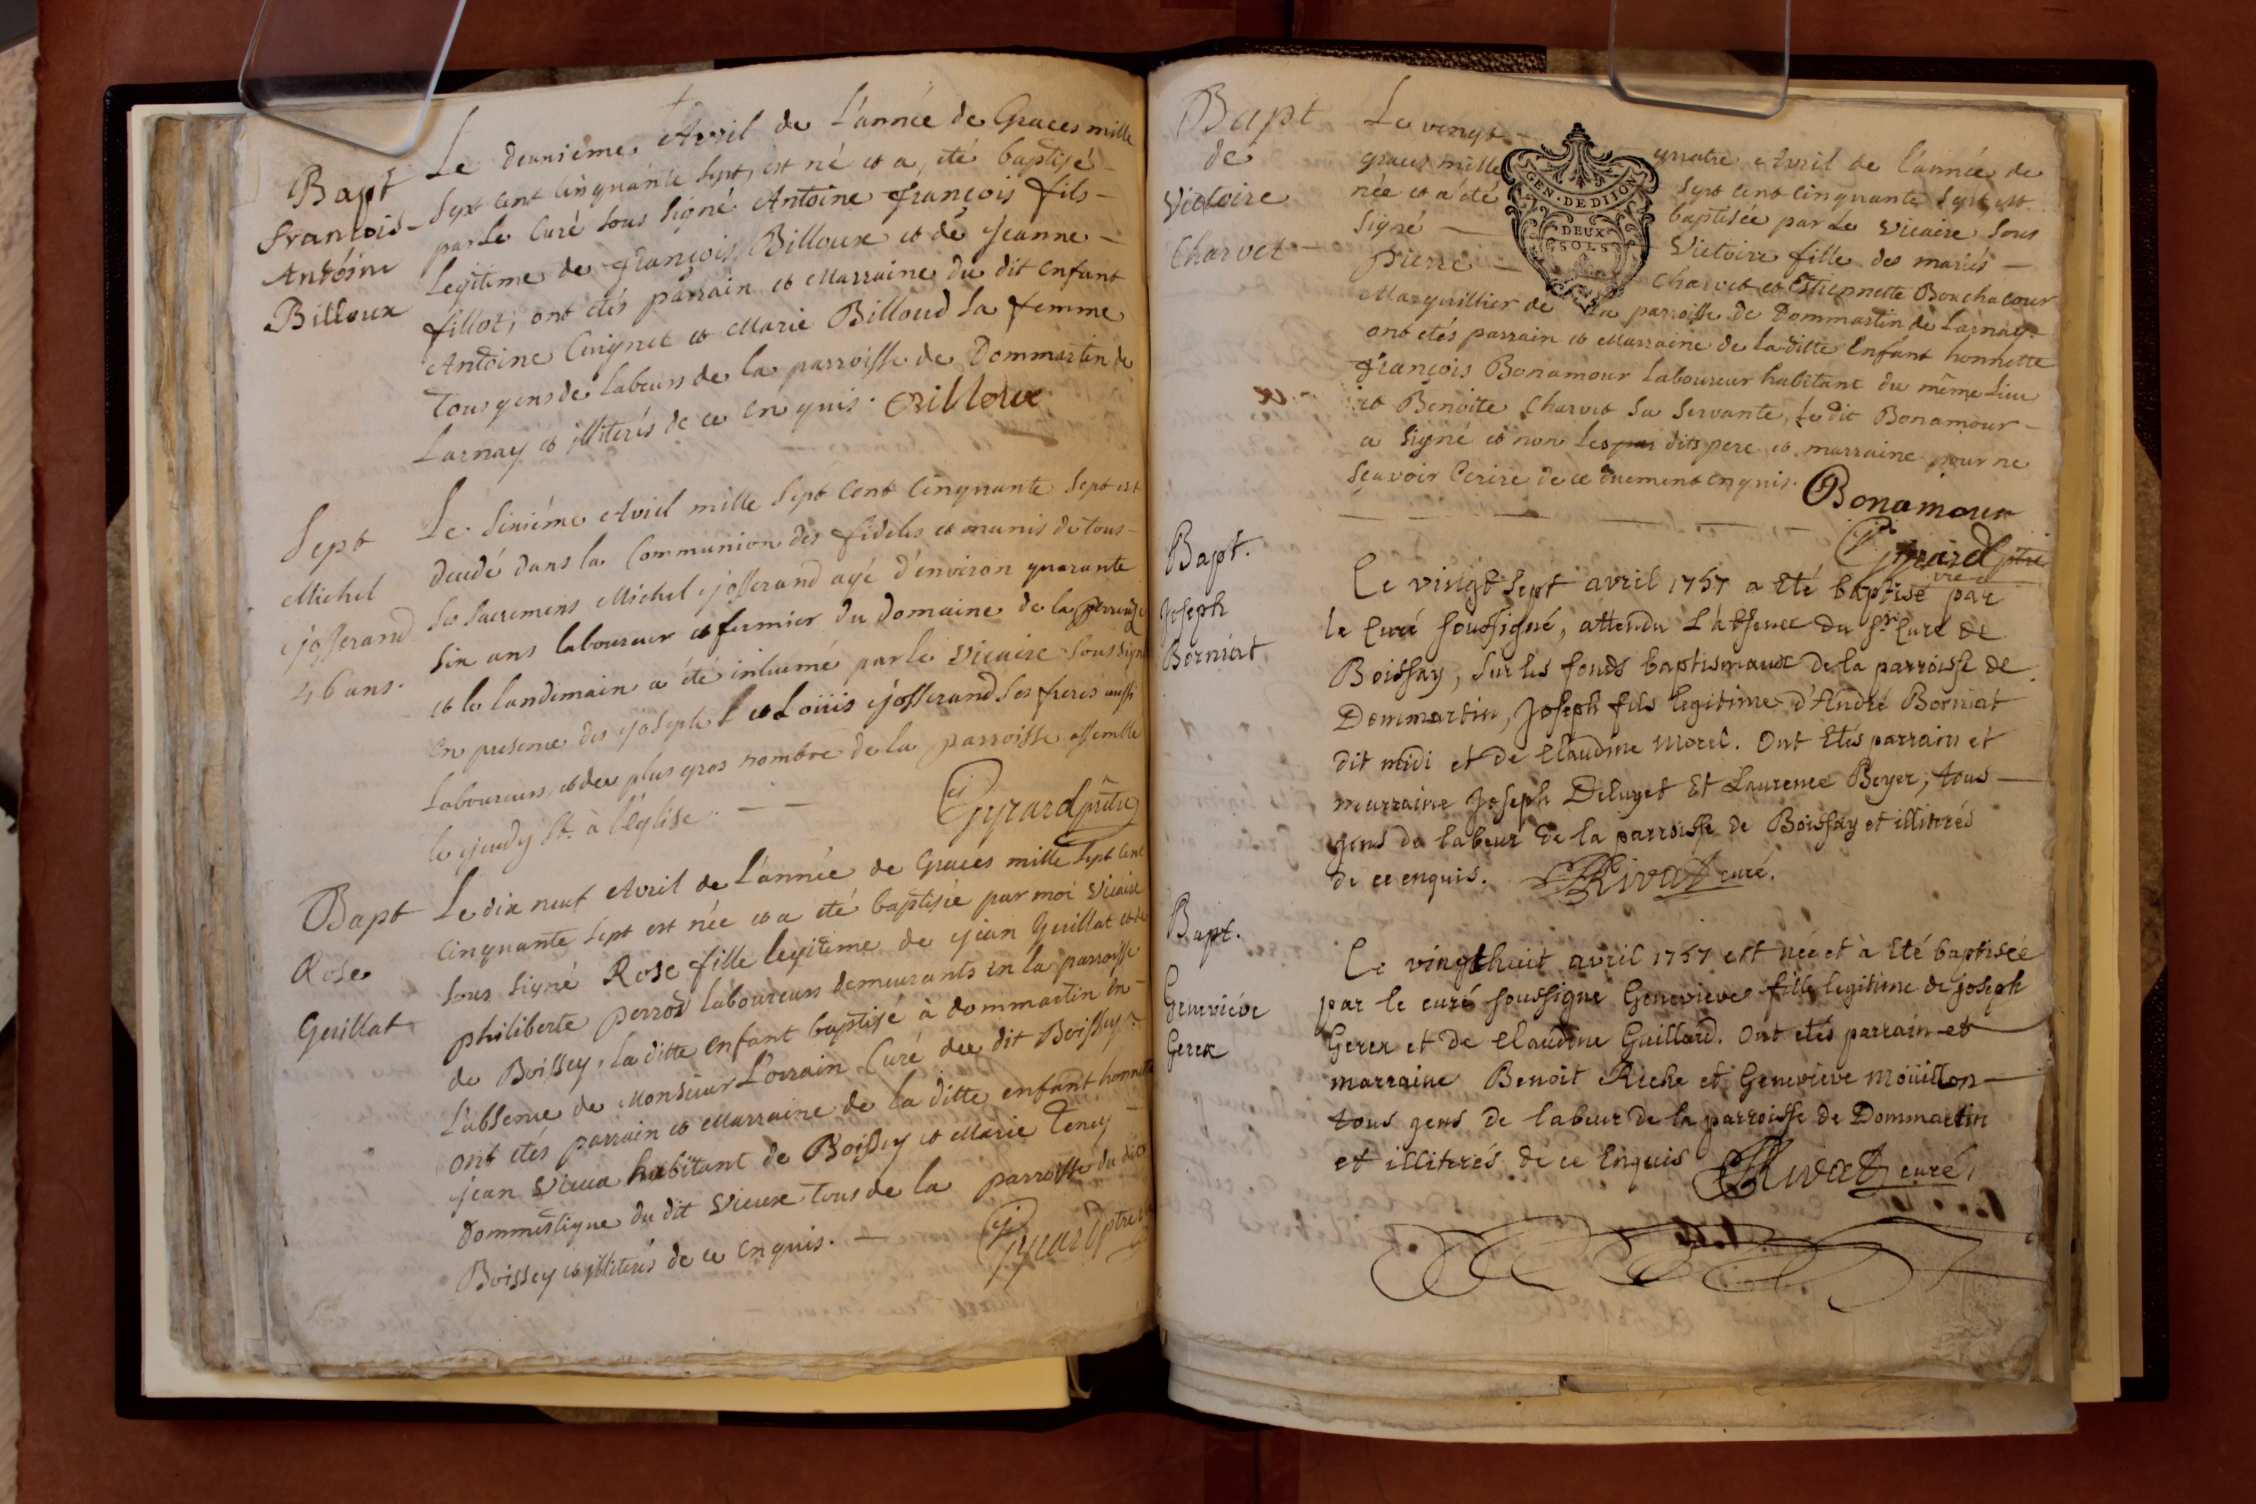 Bapt
François
Antoine
Billoux
Le deuxiéme Avril de L'année de Graces mille
Sept cent Cinquante Sept, est né et a été baptisé
par Le Curé sous signé Antoine françois fils
Legitime de françois Billoux et de Jeanne
fillot, ont étés parrain et Marraine du dit Enfant
Antoine Cuignet et Marie Billoud sa femme
Tous gens de labeurs de la parroisse de Dommartin de
Larnay et jlliterés de ce Enquis. Billoux
Sept
Michel
josserand
46 ans.
Le Sixiéme Avril mille Sept Cent Cinquante Sept est
decedé dans la Communion des fideles et munis de tous
Ses Sacremens Michel josserand agé d'environ quarante
Six ans laboureur et fermier du domaine de la
et le landemain a été inhumé par le Vicaire Soussigné
en presence des joseph et Loüis josserand Ses freres aussi
Laboureurs, et du plus gros nombre de la parroisse assemblé
le jeudy St. à l'Eglise.
Gyrard prêtre
Bapt
Rose
Guillat
Le dix neuf Avril de L'année de Graces mille Sept Cent
Cinquante Sept est née et a été baptisée par moi Vicaire
Sous Signé Rose fille legitime de jean Guillat et de
philiberte perrod laboureurs demeurants en la parroisse
de Boissey, la ditte Enfant baptisé à dommartin En
L'absence de Monsieur Lorrain Curé du dit Boissey
ont étés parrain et Marraine de la ditte enfant honnette
jean Vieux habitant de Boissey et Marie Tency
Dommestique du dit Vieux Tous de la parroisse du dit
Boissey et jlliterés de ce Enquis.
Gyrard ptre
Bapt
de
Victoire
Charvet
GEN. DE DIJON
DEUX
SOLS
Le vingt quatre Avril de l'année de
graces mille Sept Cent Cinquante Sept est
née et a été baptisée par Le Vicaire Sous
Signé Victoire fille des mariés
pierre Charvet et Estiennette Bouchacour
Marguillier de la parroisse De Dommartin de Larnay
ont étés parrain et Marraine de la ditte Enfant honnette
françois Bonamour Laboureur habitant du même Lieu
et Benoite Charvet Sa Servante, Le dit Bonamour
a Signé et non Les dits pere et marraine pour ne
Sçavoir Ecrire de ce duement enquis.
Bonamour
Gyrard ptre
vre
Bapt.
Joseph
Borniat
Le vingt sept avril 1757 a Eté baptisé par
le Curé soussigné, attendu L'absence du Sr. Curé de
Boissay, sur les fonds baptismaux de la parroisse de
Dommartin, Joseph fils legitime d'André Borniat
dit midi et de Claudine Morel. Ont Etés parrain et
marraine Joseph Deluyet Et Laurence Beyer, tous
gens de labeur de la parroisse de Boissay et illiterés
de ce enquis. Rivat curé.
Bapt.
Geneviéve
Gerex
Le vingthuit avril 1757 est née et à Eté baptisée
par le curé soussigné Genevieve fille legitime de joseph
Gerex et de Claudine Guillard. Ont etés parrain et
marraine Benoit Riche et Genevieve Moüillon
tous gens de labeur de la parroisse de Dommartin
et illiterés de ce Enquis Rivat curé.